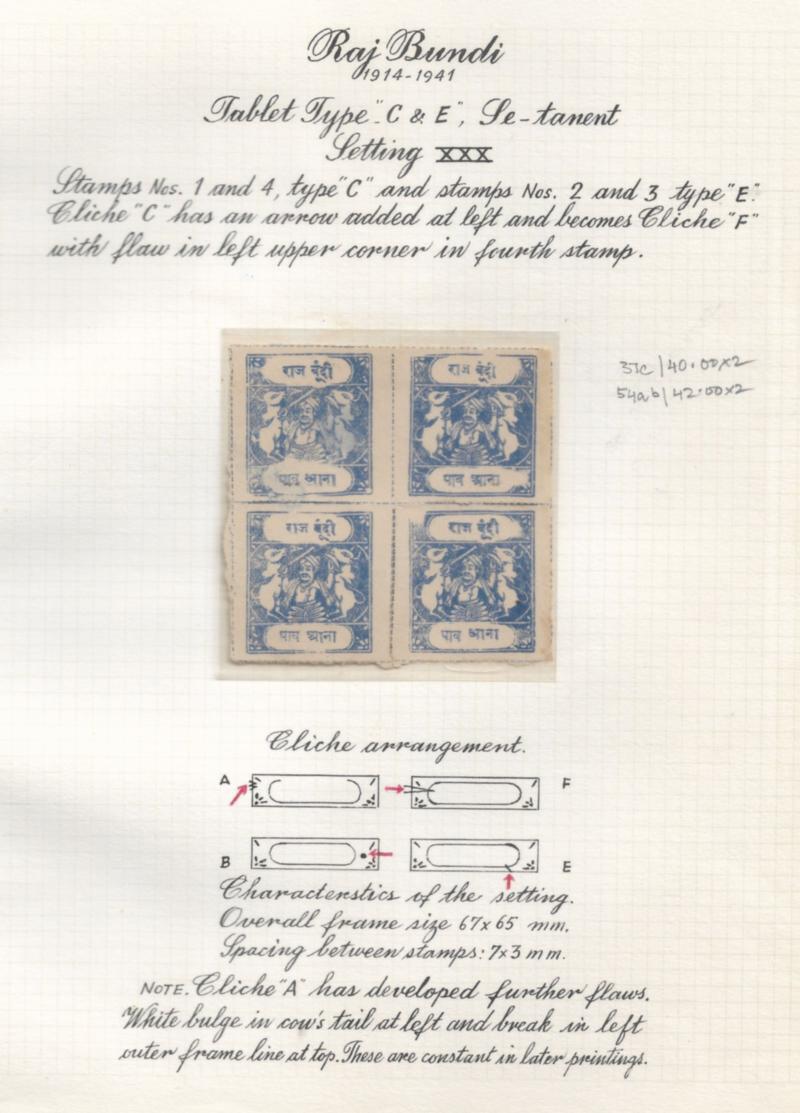 Raj Bundi
1914-1941
Tablet Type "C & E", Se-tanent
Setting XXX
Stamps Nos. 1 and 4, type "C" and stamps Nos. 2 and 3 type "E".
Cliche "C" has an arrow added at left and becomes Cliche "F"
with flaw in left upper corner in fourth stamp.
37c/40.00x2
54ab/42.00x2
राज बूंदी
राज बूंदी
पाव आना
पाव आना
राज बूंदी
राज बूंदी
पाव आना
पाव आना
Cliche arrangement.
A F
B E
Characterstics of the setting.
Overall frame size 67x65 mm.
Spacing between stamps: 7x3 mm.
NOTE. Cliche "A" has developed further flaws.
White bulge in cow's tail at left and break in left
outer frame line at top. These are constant in later printings.